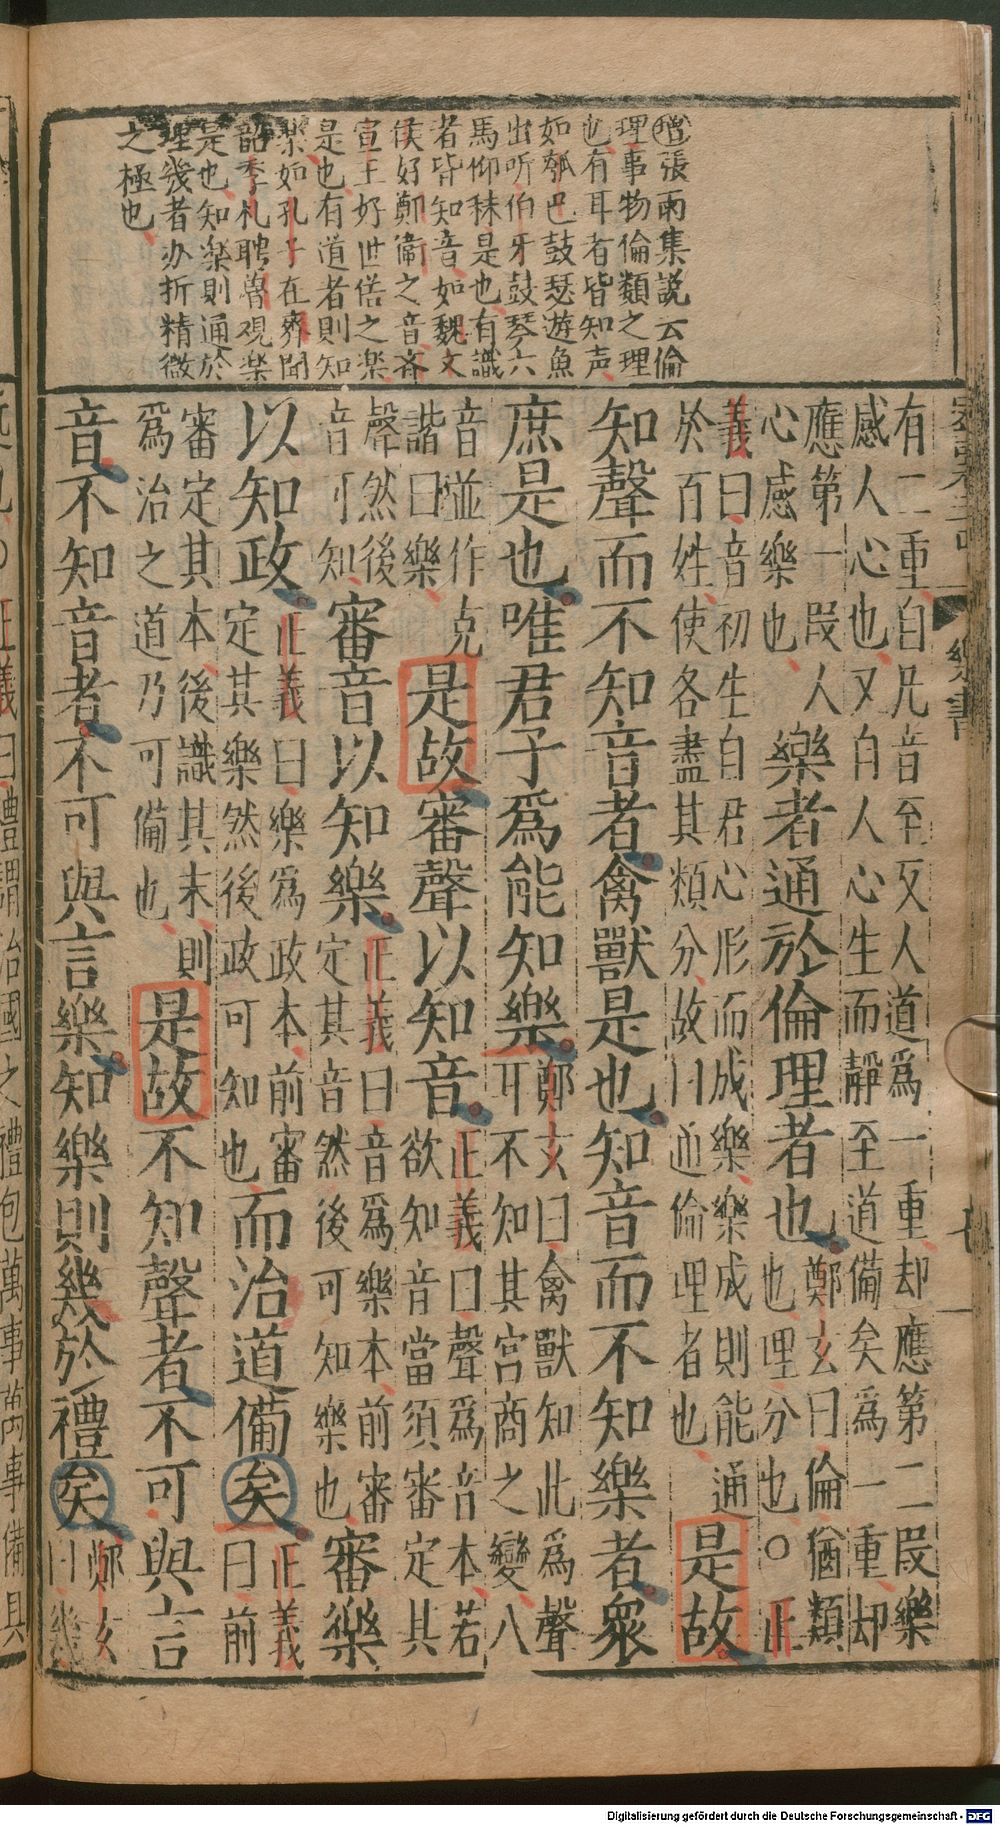 增張雨集說云倫
理事物倫類之理
也有耳者皆知声
如瓠巴鼓瑟遊魚
出听伯牙鼓琴六
馬仰秣是也有識
者皆知音如魏文
侯好鄭衛之音齐
宣王好世俗之楽
是也有道者則知
楽如孔子在齊聞
韶季札聘魯观楽
是也知楽則通於
理幾者办折精微
之極也
有二重自凡音至反人道爲一重却應第二段樂
感人心也又自人心生而靜至道備矣爲一重却
應第一段人
心感樂也
樂者通於倫理者也
鄭玄曰倫猶類
也理分也○正
義曰音初生自君心形而成樂樂成則能通
於百姓使各盡其類分故曰通倫理者也
是故
知聲而不知音者禽獸是也知音而不知樂者衆
庶是也唯君子爲能知樂
鄭玄曰禽獸知此爲聲
耳不知其宮商之變八
音並作克
諧曰樂
是故審聲以知音
正義曰聲爲音本若
欲知音當須審定其
聲然後
音可知
審音以知樂
正義曰音爲樂本前審
定其音然後可知樂也
審樂
以知政
正義曰樂爲政本前審
定其樂然後政可知也
而治道備矣
正義
曰前
審定其本後識其末則
爲治之道乃可備也
是故不知聲者不可與言
音不知音者不可與言樂知樂則幾於禮矣
鄭玄
曰幾
樂書
Digitalisierung gefördert durch die Deutsche Forschungsgemeinschaft - DFG